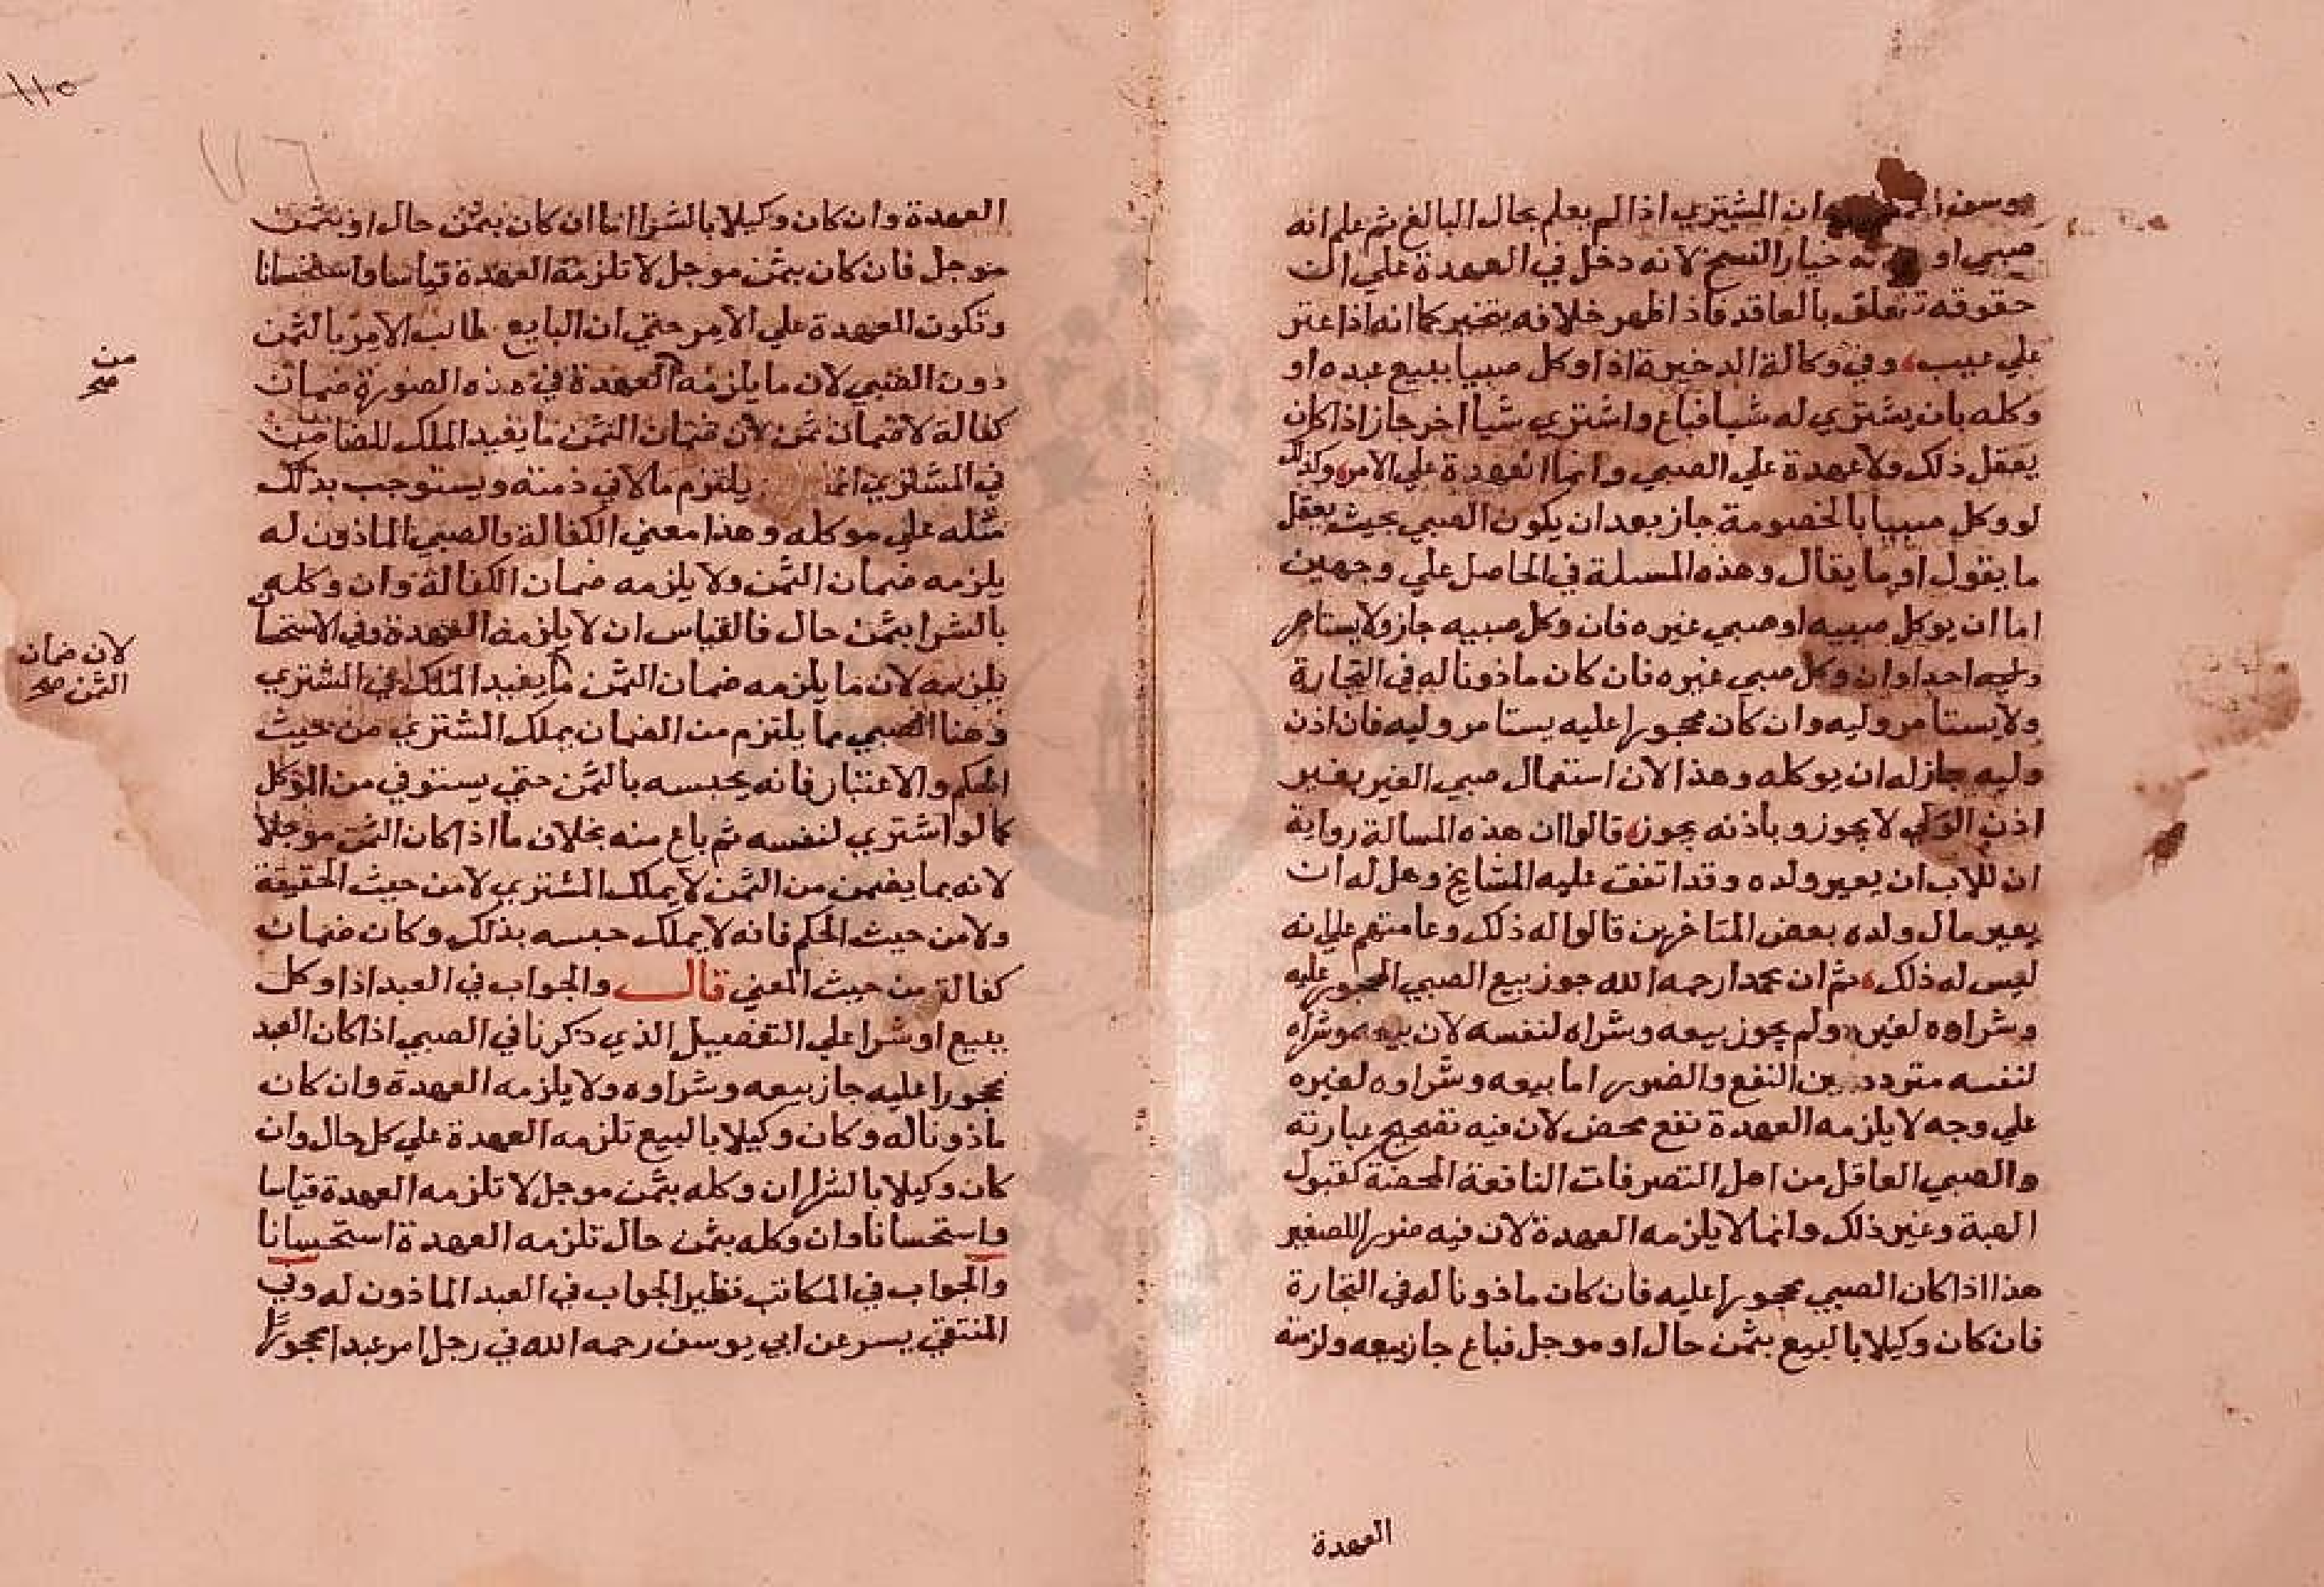 ان المشتري اذا لم يعلم بحال البالغ ثم علم انه
صبي او خيار الفسخ لانه دخل في العهدة علي ان
حقوقه تتعلق بالعاقد فاذا ظهر خلافه يتخير كما انه اذا عثر
علي عيب وفي وكالة الدخيرة اذا وكل صبيا ببيع عبده او
وكله بان يشتري له شيا فباع واشتري شيا اخر جاز اذا كان
يعقل ذلك ولا عهدة علي الصبي وانما العهدة علي الامر وكذلك
لو وكل صبيا بالخصومة جاز بعد ان يكون الصبي بحيث يعقل
ما يقول او ما يقال وهذه المسلة في الحاصل علي وجهين
اما ان يوكل صبيه او صبي غيره فان وكل صبيه جاز ولا يستامر
احدا وان وكل صبي غيره فان كان ماذونا له في التجارة
ولا يستامر وليه وان كان محجورا عليه يستامر وليه فان اذن
وليه جاز له ان يوكله وهذا لان استعمال صبي الغير بغير
اذن الولي لا يجوز وباذنه يجوز قالوا ان هذه المسالة رواية
ان للاب ان يعير ولده وقد اتفق عليه المشايخ وهل له ان
يعير مال ولده بعض المتاخرين قالوا له ذلك وعامتهم علي انه
ليس له ذلك ثم ان محمدا رحمه الله جوز بيع الصبي المحجور عليه
وشراوه لغيره ولم يجوز بيعه وشراه لنفسه لان بيعه وشراه
لنفسه متردد بين النفع والضرر اما بيعه وشراوه لغيره
علي وجه لا يلزمه العهدة نفع محض لان فيه تصحيح عبارته
والصبي العاقل من اهل التصرفات النافعة المحضة كقبول
الهبة وغير ذلك وانما لا يلزمه العهدة لان فيه ضررا للصغير
هذا اذا كان الصبي محجورا عليه فان كان ماذونا له في التجارة
فان كان وكيلا بالبيع بثمن حال او موجل فباع جاز بيعه ولزمته
العهدة
١١٥
العهدة وان كان وكيلا بالشرا اما ان كان بثمن حال او بثمن
موجل فان كان بثمن موجل لا تلزمه العهدة قياسا واستحسانا
وتكون العهدة علي الامر حتي ان البايع طالب الامر بالثمن
دون الصبي لان ما يلزمه العهدة في هذه الصورة ضمان
من
صح
كفالة لا ضمان ثمن لان ضمان الثمن ما يفيد الملك للضامن
في المشتري انما يلتزم مالا في ذمته ويستوجب بذلك
مثله علي موكله وهذا معني الكفالة والصبي الماذون له
يلزمه ضمان الثمن ولا يلزمه ضمان الكفالة وان وكله
بالشرا بثمن حال فالقياس ان لا يلزمه العهدة وفي الاستحسا
لان ضمان
الثمن صح
يلزمه لان ما يلزمه ضمان الثمن ما يفيد الملك في المشتري
وهنا الصبي بما يلتزم من الضمان يملك المشتري من حيث
الحكم والاعتبار فانه يحبسه بالثمن حتي يستوفي من الموكل
كما لو اشتري لنفسه ثم باع منه بخلاف ما اذا كان الثمن موجلا
لانه بما يضمن من الثمن لا يملك المشتري لا من حيث الحقيقة
ولا من حيث الحكم فانه لا يملك حبسه بذلك وكان ضمان
كفالة من حيث المعني قال والجواب في العبد اذا وكل
ببيع او شرا علي التفصيل الذي ذكرنا في الصبي اذا كان العبد
محجورا عليه جاز بيعه وشراوه ولا يلزمه العهدة وان كان
ماذونا له وكان وكيلا بالبيع تلزمه العهدة علي كل حال وان
كان وكيلا بالشرا ان وكله بثمن موجل لا تلزمه العهدة قياسا
واستحسانا وان وكله بثمن حال تلزمه العهدة استحسانا
والجواب في المكاتب نظير الجواب في العبد الماذون له وفي
المنتقي بسر عن ابي يوسف رحمه الله في رجل امر عبدا محجورا